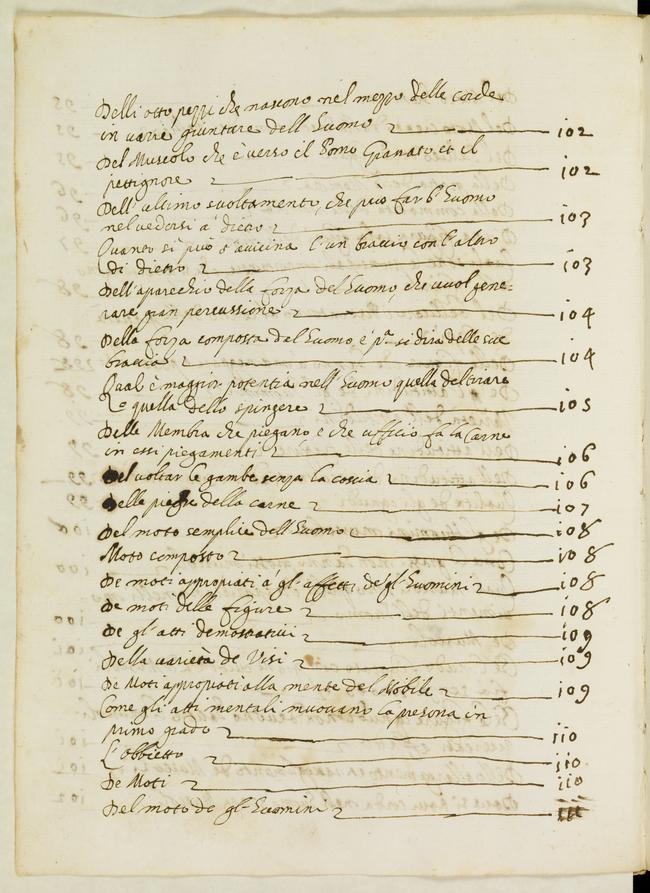 Delli otto pezzi che nascono nel mezzo delle corde
in varie giunture dell'Huomo 102
Del Muscolo che è verso il Pomo Granato et il
pettignone 102
Dell'ultimo svoltamento, che può far l'Huomo
nel vedersi a' dietro 103
Quanto si può avicina l'un braccio con l'altro
di dietro 103
Dell'aparechio della forza del'Huomo, che vuol gene-
rare gran percussione 104
Della forza composta dal Huomo, e pª si dira delle sue
braccia 104
Qual è maggior potentia nell'Huomo quella del tirare
o quella dello spingere 105
Delle Membra che piegano, e che ufficio fa la carne
in essi piegamenti 106
Del voltar le gambe senza la coscia 106
Delle pieghe della carne 107
Del moto semplice dell'Huomo 108
Moto composto 108
De moti appropiati a' gl'affetti de gl'Huomini 108
De moti delle figure 108
De gl'atti demostrativi 109
Della varietà de Visi 109
De Moti appropiati alla mente del Mobile 109
Come gli atti mentali muovano la persona in
primo grado 110
L'obbietto 110
De Moti 110
Del moto de gl'Huomini 111